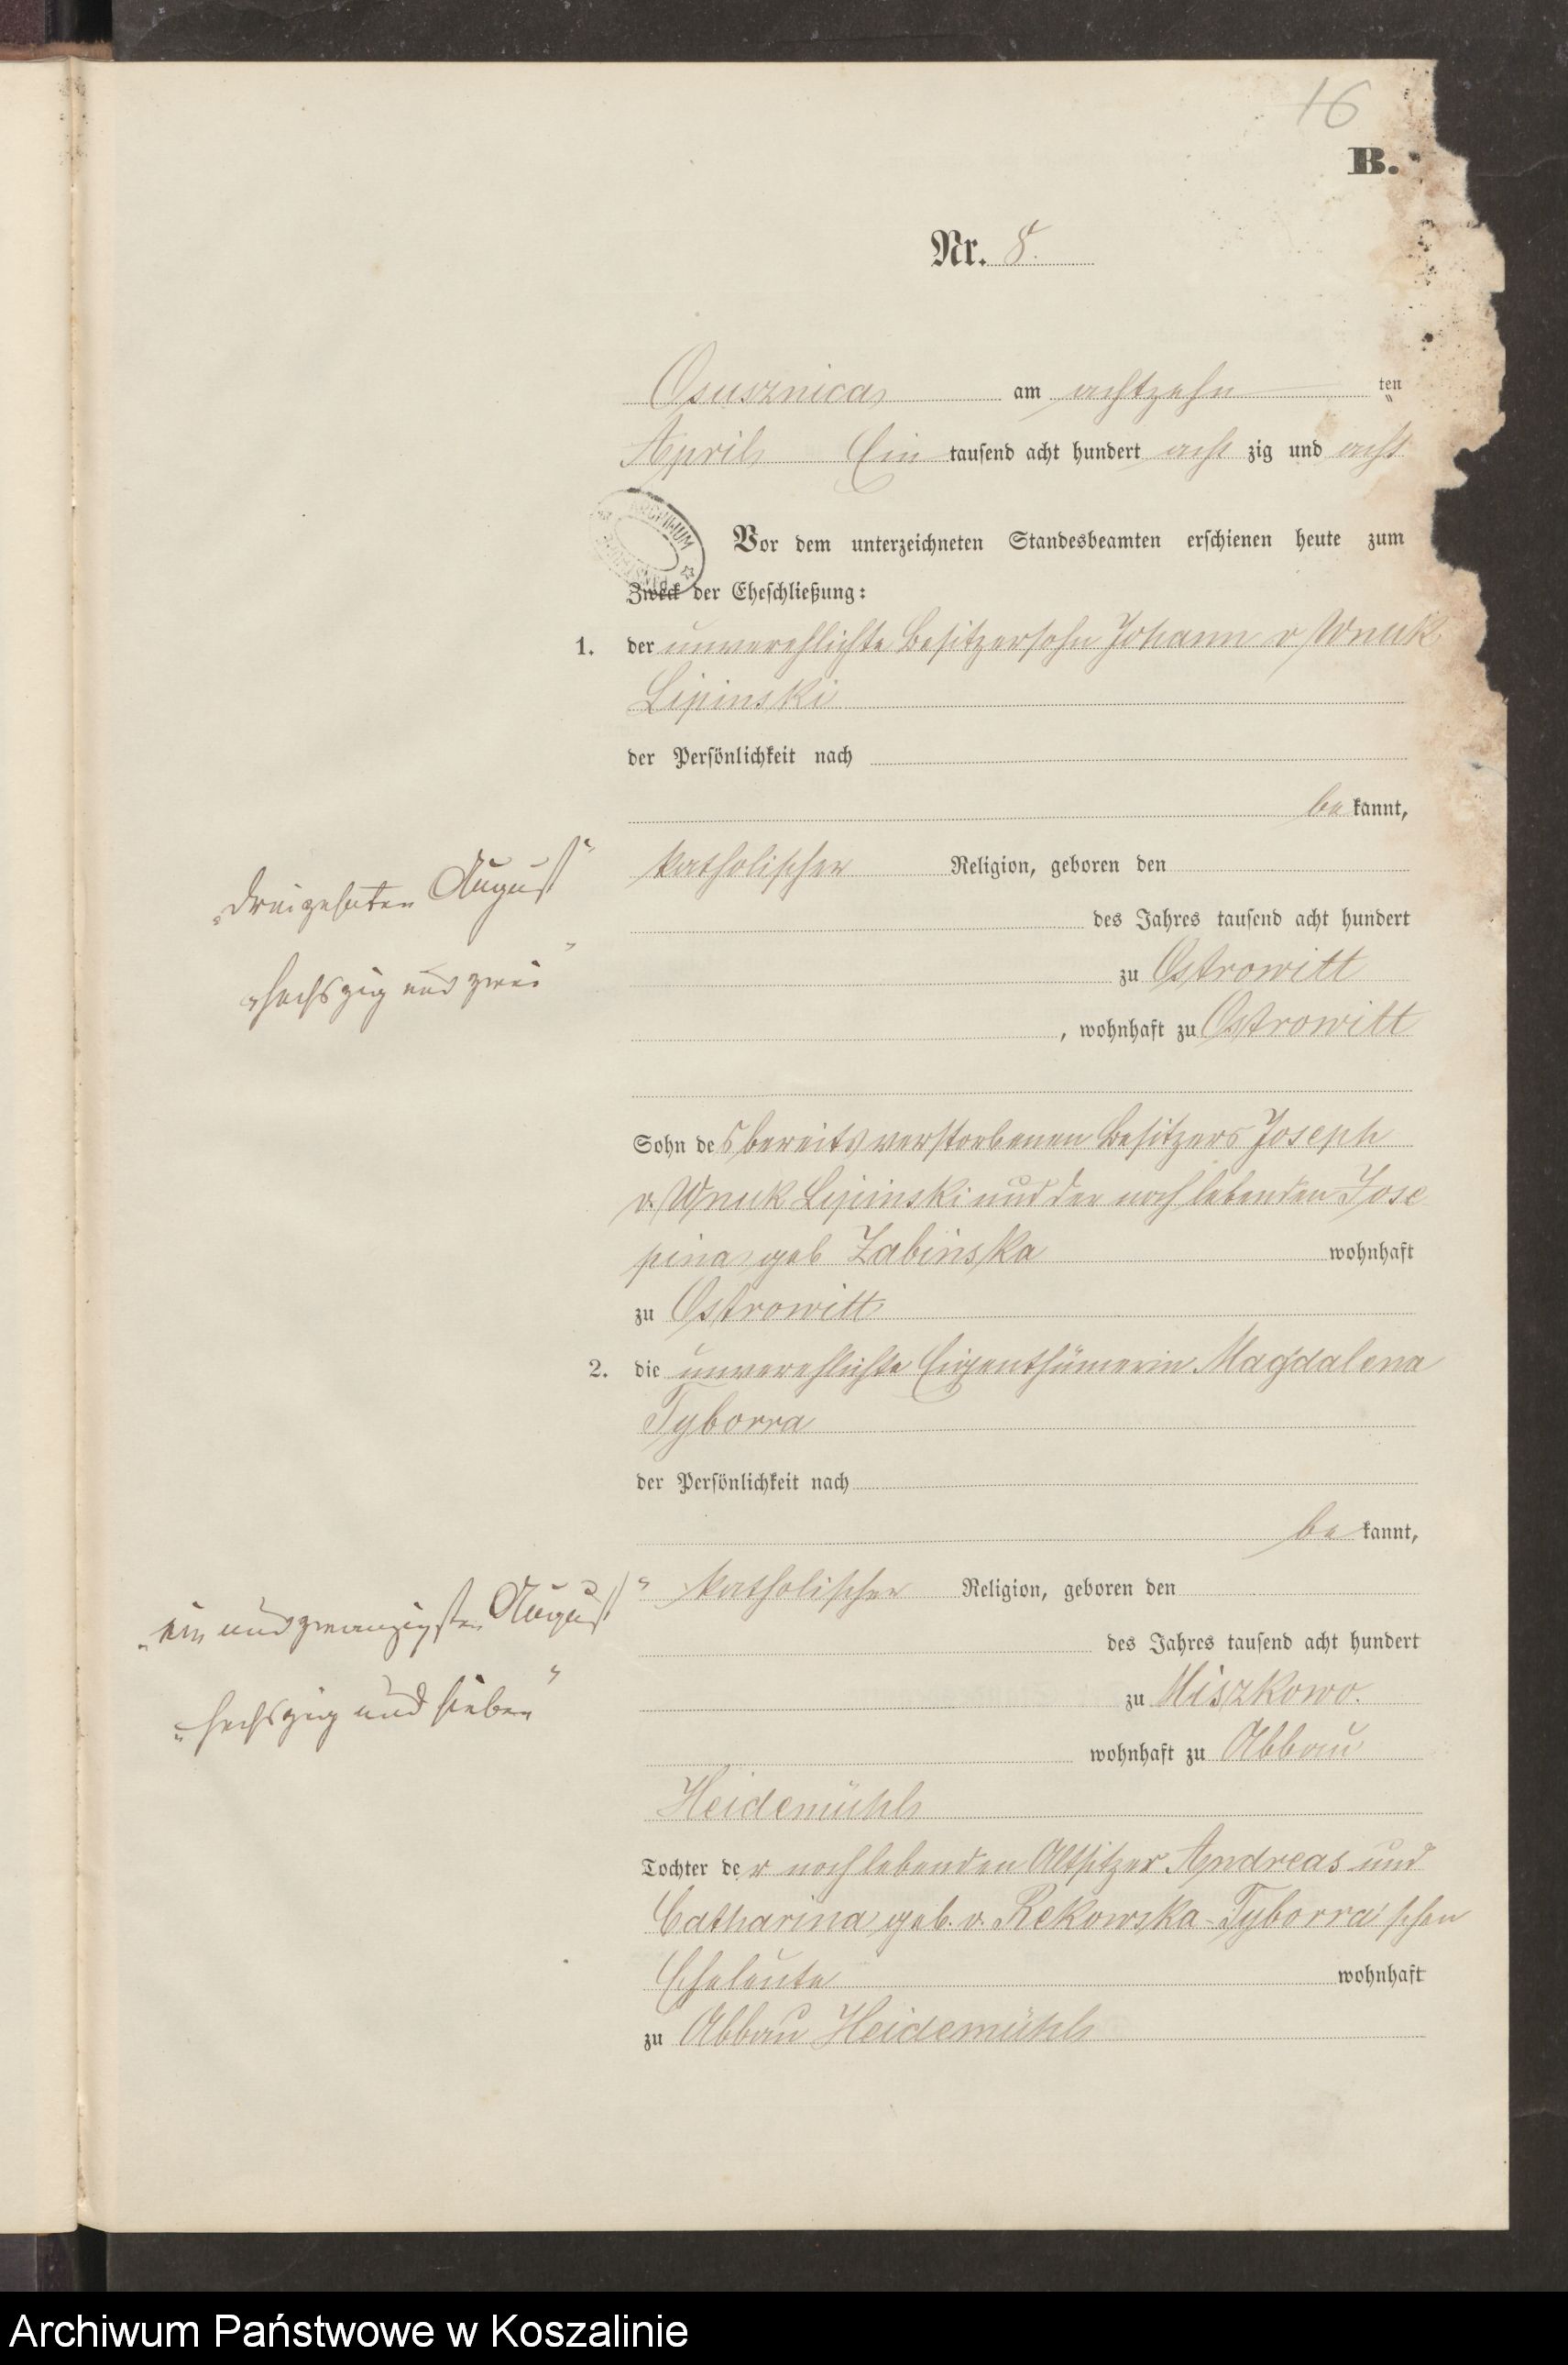 16
B.
Nr. 8.
Osusznica am achtzehn ten
April Ein tausend acht hundert acht zig und acht
Vor dem unterzeichneten Standesbeamten erschienen heute zum
Zweck der Eheschließung:
1. der unverehlichte Besitzersohn Johann v Wnuk
Lipinski
der Persönlichkeit nach
be kannt,
katholischer Religion, geboren den
„dreizehnten August“
des Jahres tausend acht hundert
„sechszig und zwei“
zu Ostrowitt
, wohnhaft zu Ostrowitt
Sohn des bereits verstorbenen Besitzers Joseph
v. Wnuk Lipinski und der noch lebenden Jose
pina geb Zabinska wohnhaft
zu Ostrowitt
2. die unverehlichte Eigenthümerin Magdalena
Tyborra
der Persönlichkeit nach
be kannt,
katholischer Religion, geboren den
„ein und zwanzigsten August“
des Jahres tausend acht hundert
„sechszig und sieben“
zu Miszkowo.
wohnhaft zu Abbau
Heidemühl
Tochter der noch lebenden Altsitzer Andreas und
Catharina geb. v. Rekowska-Tyborra'schen
Eheleute wohnhaft
zu Abbau Heidemühl
ARCHIWUM
Archiwum Państwowe w Koszalinie